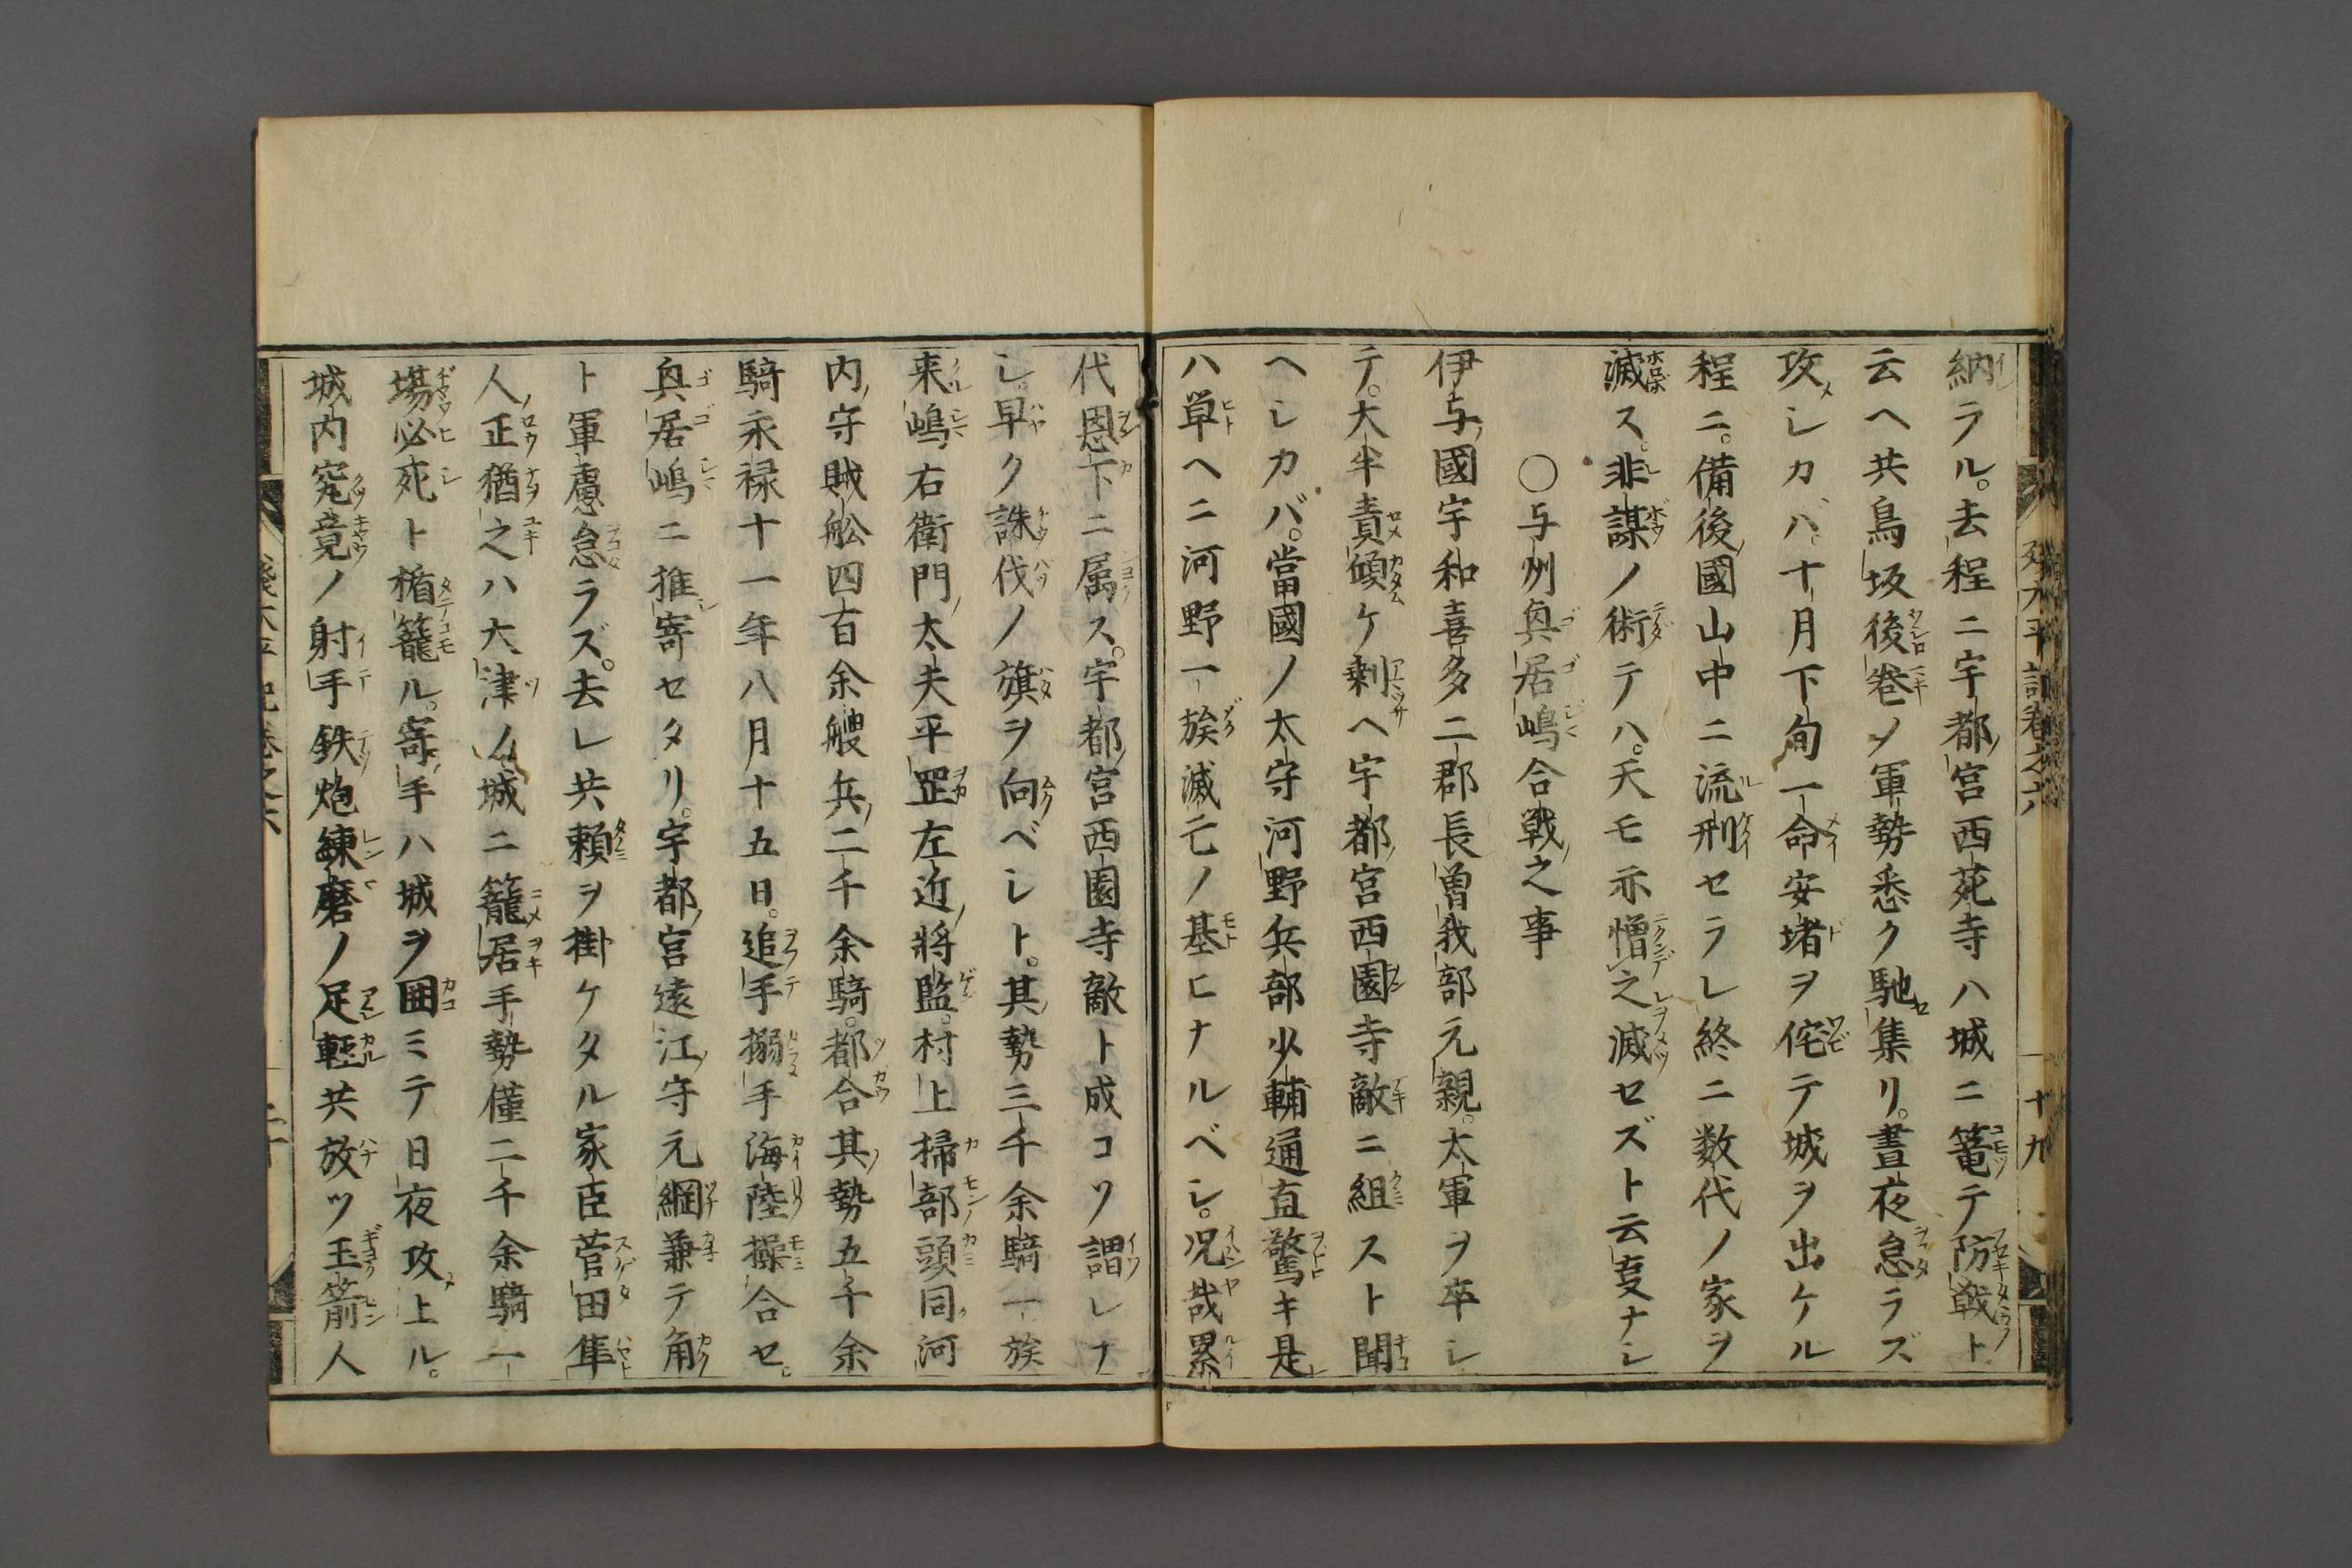 納ラル。去程ニ宇都宮西苑寺ハ城ニ篭テ防戦ト
云ヘ共鳥坂後巻ノ軍勢悉ク馳集リ。晝夜怠ラズ
攻シカバ。十月下旬一命安堵ヲ侘テ城ヲ出ケル
程ニ。備後國山中ニ流刑セラレ終ニ数代ノ家ヲ
滅ス。非謀ノ術テハ。天モ亦憎之滅セズト云支ナシ
〇与州奥居嶋合戦之事
伊与國宇和喜多二郡長曽我部元親。太軍ヲ卒シ
テ。大半責傾ケ剰ヘ宇都宮西園寺敵ニ組スト聞
ヘシカバ。當國ノ太守河野兵部少輔通直驚キ是
ハ単ヘニ河野一族滅亡ノ基ヒナルベシ。况哉累
代恩下ニ属ス。宇都宮西園寺敵ト成コソ謂レナ
シ。早ク誅伐ノ旗ヲ向ベシト。其勢三千余騎一族
来嶋右衛門太夫平罡左近将監。村上掃部頭同河
内守賊舩四百余艘兵二千余騎。都合其勢五千余
騎永禄十一年八月十五日。追手搦手海陸操合セ。
奥居嶋ニ推寄セタリ。宇都宮遠江守元綱兼テ角
ト軍慮怠ラズ。去レ共頼ヲ掛ケタル家臣菅田隼
人正猶之ハ大津ノ城ニ籠居手勢僅二千余騎一
場必死ト楯籠ル。寄手ハ城ヲ囲ミテ日夜攻上ル。
城内究竟ノ射手鉄炮練磨ノ足軽共放ツ玉箭人
残太平記巻之六
十九
残太平記巻之六
二十